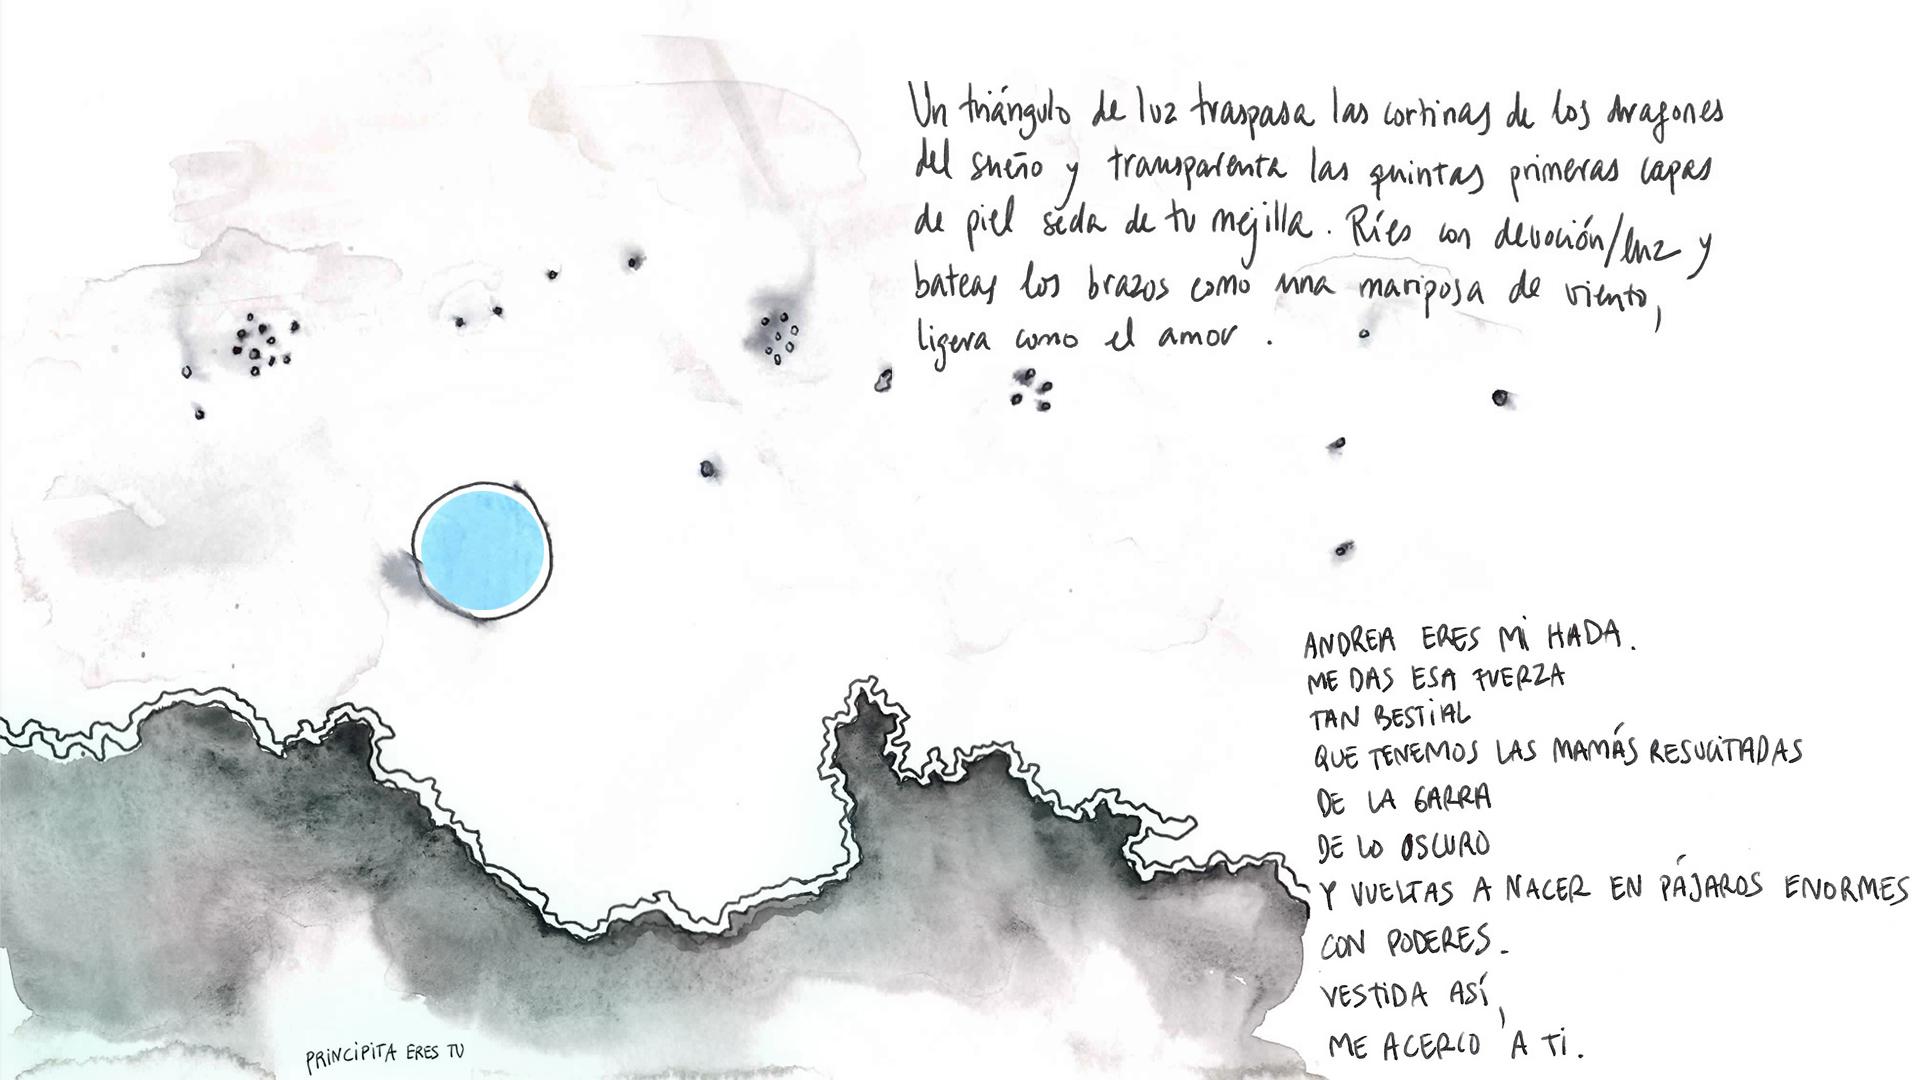 Un triángulo de luz traspasa las cortinas de los dragones
del sueño y transparenta las quintas primeras capas
de piel seda de tu mejilla. Ríes con devoción/luz y
bateas los brazos como una mariposa de viento,
ligera como el amor.
ANDREA ERES Mi HADA.
ME DAS ESA FUERZA
TAN BESTiAL
QUE TENEMOS LAS MAMÁS RESUCITADAS
DE LA GARRA
DE LO OSCURO
Y VUELTAS A NACER EN PÁJAROS ENORMES
CON PODERES.
VESTiDA ASÍ,
ME ACERCO A Ti.
PRiNCiPiTA ERES TU